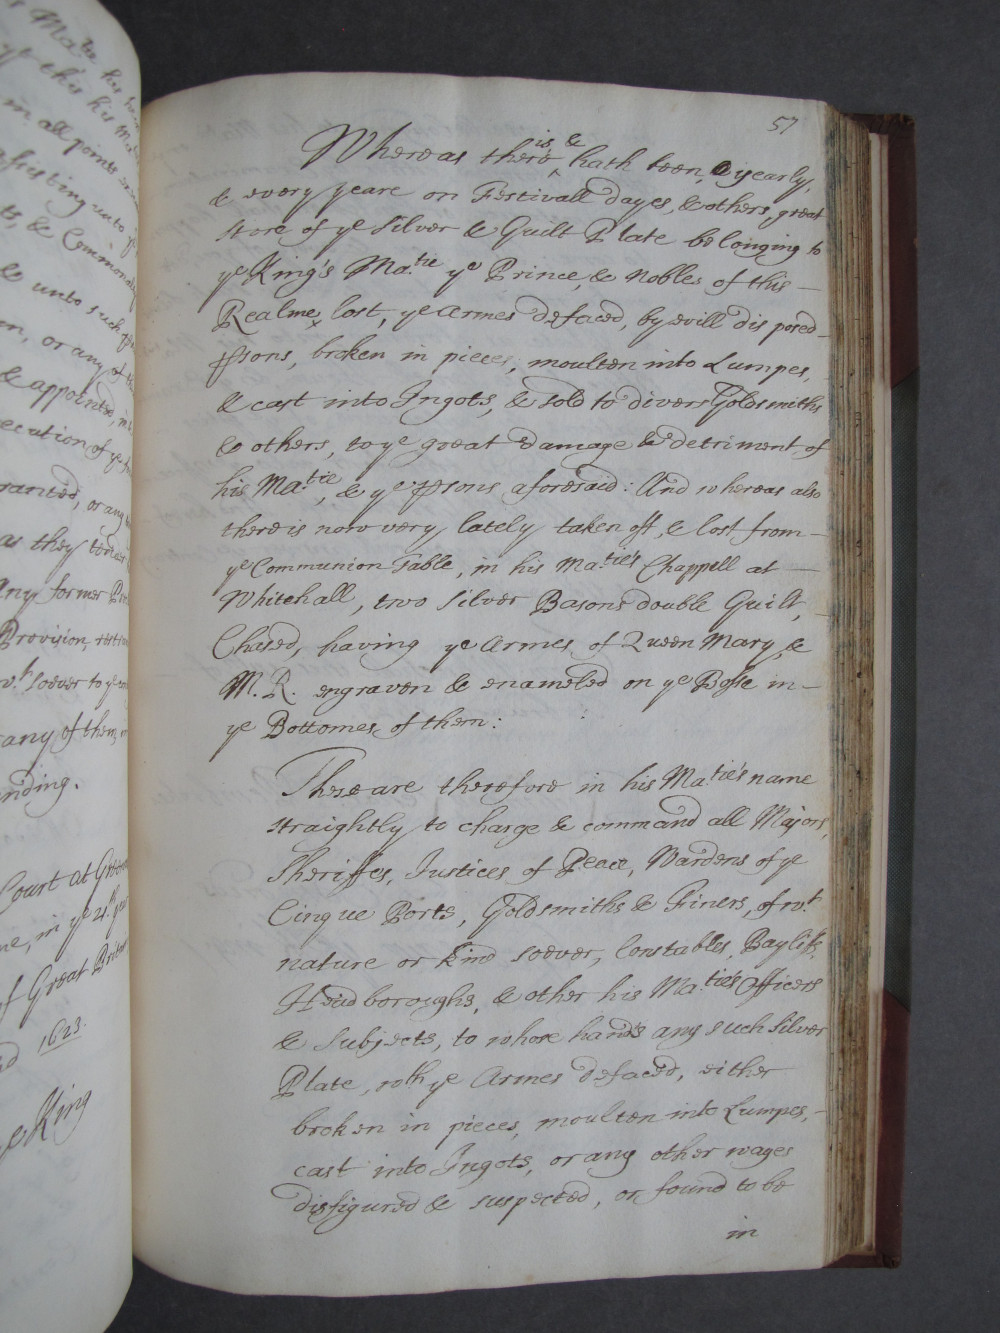 57
Whereas there ^is & hath been, yearly,
& every yeare on Festivall dayes, & others, great
store of ye Silver & Guilt Plate belonging to
ye King's Ma:tie ye Prince, & Nobles of this —
Realme, lost, ye Armes defaced, by evill disposed —
ꝑsons, broken in pieces, moulten into Lumpes,
& cast into Ingots, & sold to divers Goldsmiths
& others, to ye great damage & detriment of
his Ma:tie, & ye ꝑsons aforesaid: And whereas also
there is now very lately taken off, & lost from —
ye Communion Table, in his Ma:tie's Chappell at —
Whitehall, two Silver Basons double Guilt, —
Chased, having ye Armes of Queen Mary, &
M. R. engraven & enameled on ye Bosse in —
ye Bottomes of them:
These are therefore in his Ma:tie's name
straightly to charge & command all Majors,
Sheriffes, Justices of Peace, Wardens of ye
Cinque Ports, Goldsmiths & Finers, of w:t
nature or kind soever, Constables, Bayliffs,
Headboroughs, & other his Ma:tie's Officers
& Subjects, to whose hands any such Silver
Plate, wth ye Armes defaced, either
broken in pieces, moulten into Lumpes, —
cast into Ingots, or any other wayes
disfigured & suspected, or found to be
in
s Ma:tie his
yt this his
in all points
assisting unto
& unto such
or any of
& appointed,
ecution of ye
ranted, or any
as they tender
any former
Provision,
w:t soever to ye
any of them,
anding.
Court at
in ye 21th
of Great
1623.
ye King